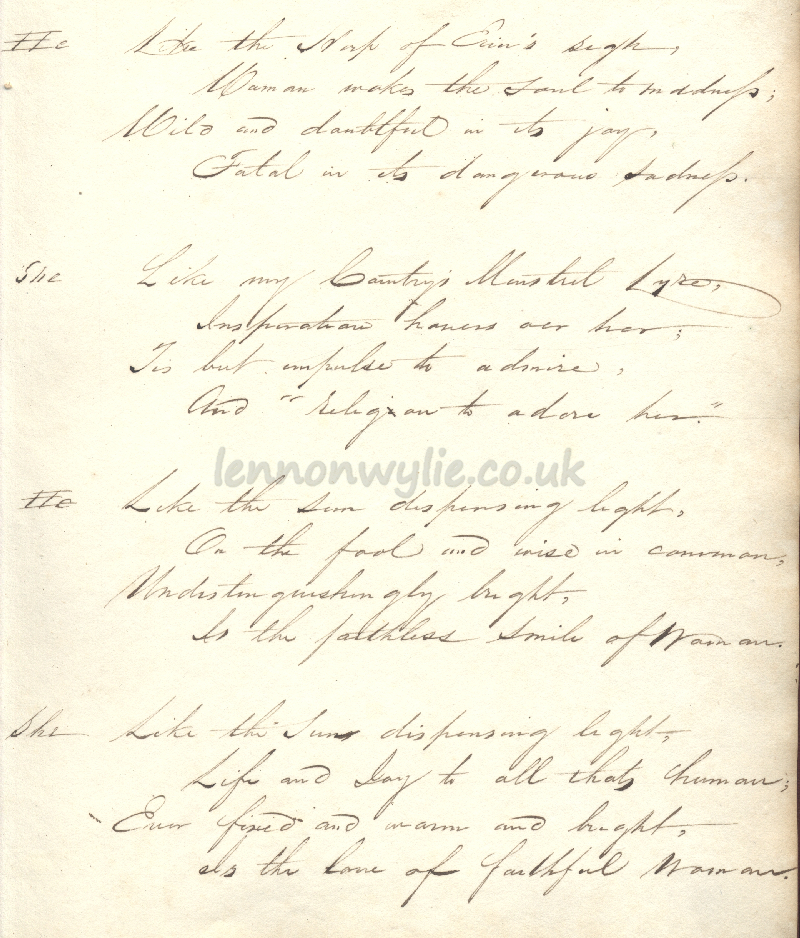 He Like the Harp of Erin's sigh,
Woman wakes the soul to madness;
Wild and doubtful in its joy,
Fatal in its dangerous sadness.
She Like my Country's Minstrel Lyre,
Inspiration hovers oer her;
Tis but impulse to admire,
And "religion to adore her."
lennonwylie.co.uk
He Like the sun dispensing light,
On the fool and wise in common,
Undistinguishingly bright,
Is the faithless smile of Woman.
She Like the Sun dispensing light,
Life and Joy to all thats human;
Ever fixed and warm and bright,
Is the love of faithful Woman.